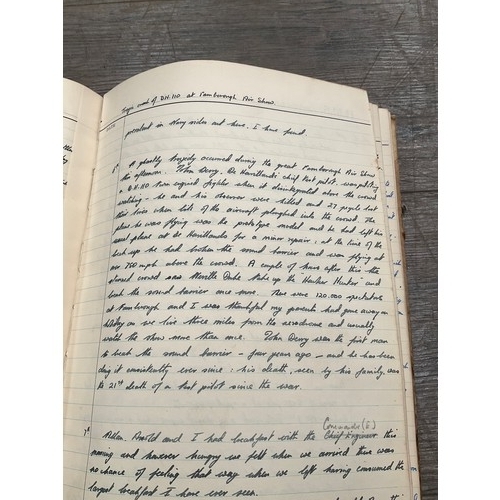 Tragic crash of D.H. 110 at Farnborough Air Show.
prevalent in Navy sides out here, I have found.
A ghastly tragedy occurred during the great Farnborough Air Show
this afternoon. John Derry, De Havillands chief test pilot, was piloting
a D.H. 110 twin engined fighter when it disintegrated above the crowd
watching - he and his observer were killed and 27 people lost
their lives when bits of the aircraft ploughed into the crowd. The
plane he was flying was the prototype model and he had left his
usual plane at De Havillands for a minor repair; at the time of the
break up he had broken the sound barrier and was flying at
over 700 mph above the crowd. A couple of hours after this the
stunned crowd saw Neville Duke take up the "Hawker Hunter" and
break the sound barrier once more. There were 120,000 spectators
at Farnborough and I was thankful my parents had gone away on
holiday as we live three miles from the aerodrome and usually
watch the show more than once. John Derry was the first man
to break the sound barrier - four years ago - and he has been
doing it consistently ever since; his death, seen by his family, was
the 21st death of a test pilot since the war.
Commander (E)
7th Allan, Arnold and I had breakfast with the Chief Engineer this
morning and however hungry we felt when we arrived there was
no chance of feeling that way when we left having consumed the
largest breakfast I have ever seen.